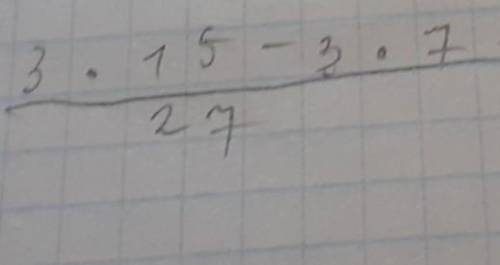 3 · 15 - 3 · 7
27